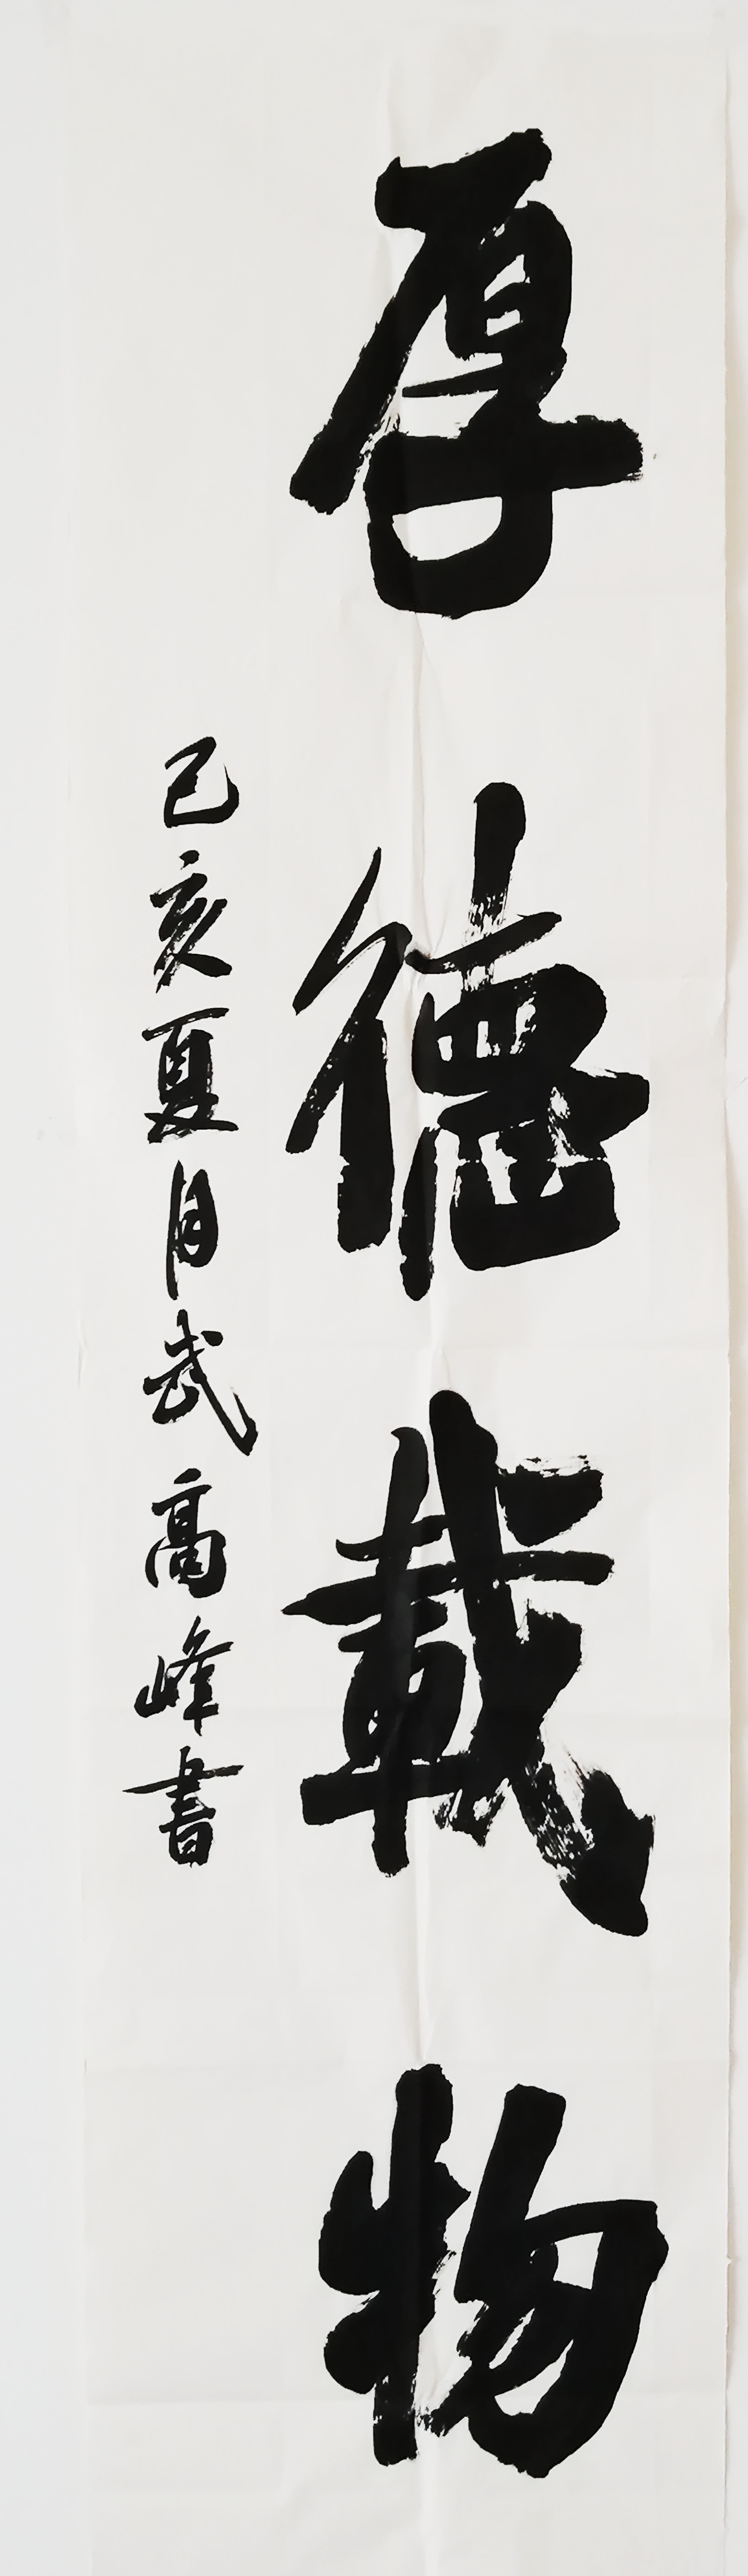 厚德載物
己亥夏月武高峰書